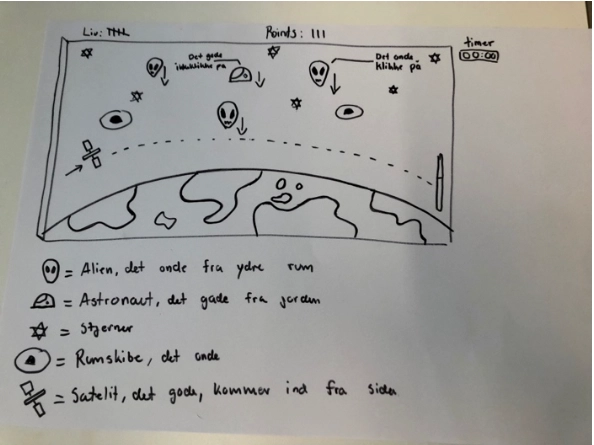 Liv: 
Points: III
timer
00:00
Det gode
ikke klikke på
Det onde
klikke på
= Alien, det onde fra ydre rum
= Astronaut, det gode fra jorden
= Stjerner
= Rumskibe, det onde
= Satelit, det gode, kommer ind fra siden